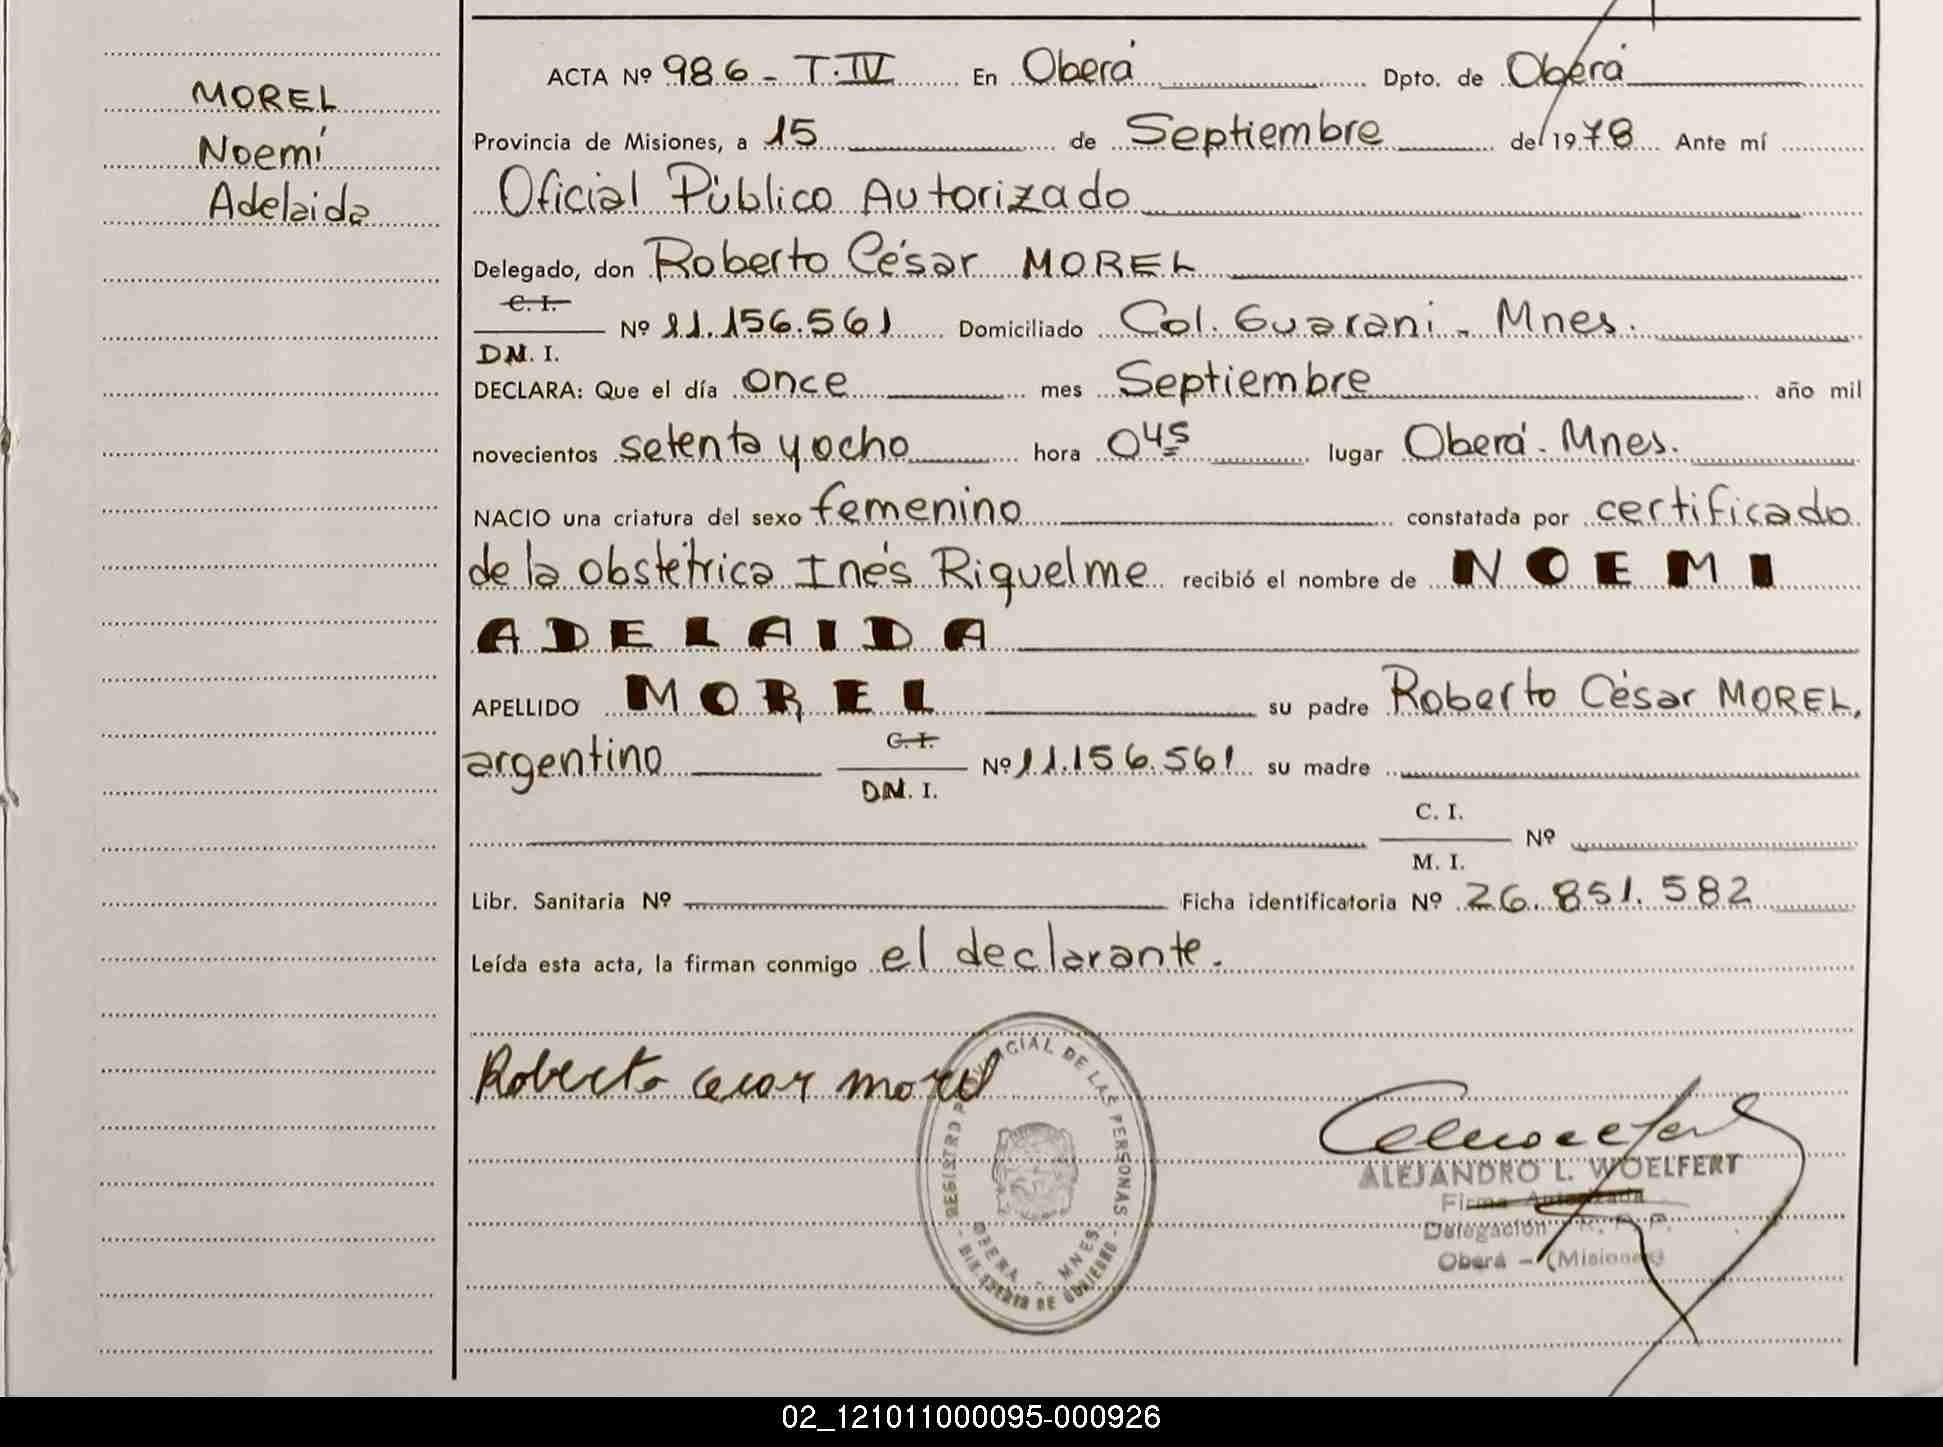 MOREL
Noemí
Adelaida
ACTA Nº 986 - T. IV En Oberá Dpto. de Oberá
Provincia de Misiones, a 15 de Septiembre de 1978 Ante mí
Oficial Público Autorizado
Delegado, don Roberto César MOREL
C. I.
Nº 11.156.561 Domiciliado Col. Guarani - Mnes.
DN. I.
DECLARA: Que el día once mes Septiembre año mil
novecientos setenta y ocho hora 0 45 lugar Oberá. Mnes.
NACIO una criatura del sexo femenino constatada por certificado
de la obstétrica Inés Riquelme recibió el nombre de NOEMI
ADELAIDA
APELLIDO MOREL su padre Roberto César MOREL,
C. I.
argentino Nº 11.156.561 su madre
DN. I.
C. I.
Nº
M. I.
Libr. Sanitaria Nº Ficha identificatoria Nº 26.851.582
Leída esta acta, la firman conmigo el declarante.
Roberto cesar morel
REGISTRO PROVINCIAL DE LAS PERSONAS
OBERA - MNES.
DE GOBIERNO
ALEJANDRO L. WOELFERT
Firma Autorizada
Delegación R. P. P.
Oberá - (Misiones)
02_121011000095-000926